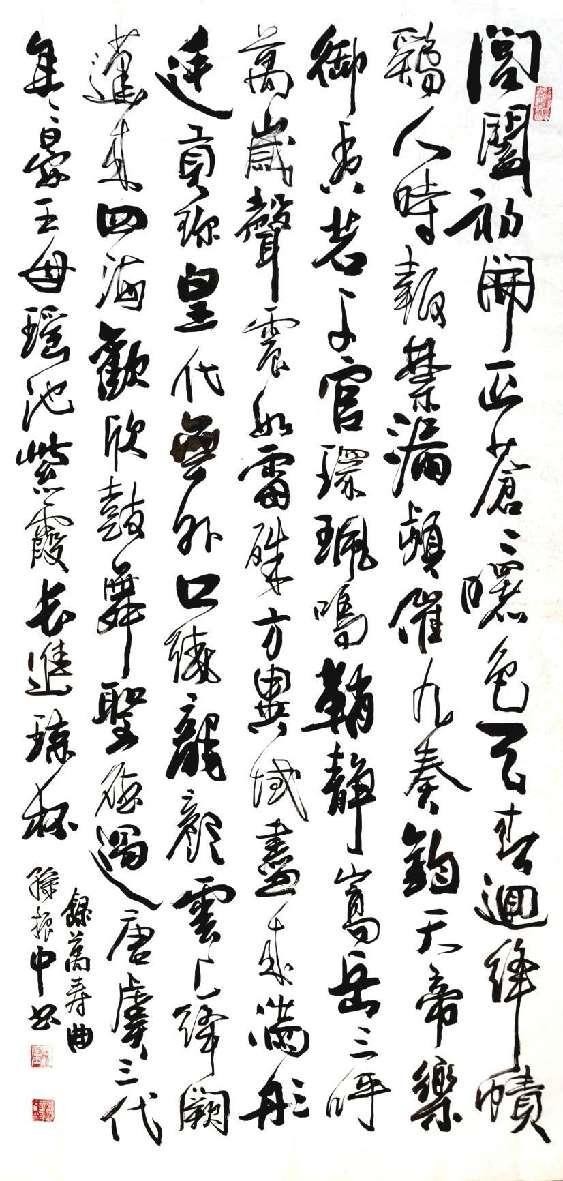 閶闔初開正蒼〻曙色天春迴絳幘
鷄人時報禁漏頻催九奏鈞天帝樂
御香若千官環珮鳴鞘靜嵩岳三呼
萬歲聲震如雷殊方異域盡來滿彤
廷貢珍皇代無外日繞龍顏雲上絳闕
蓬來四海歡欣鼓舞聖德過唐虞三代
年〻宴王母瑤池紫霞長進瓊杯
錄萬壽曲
孫振中書